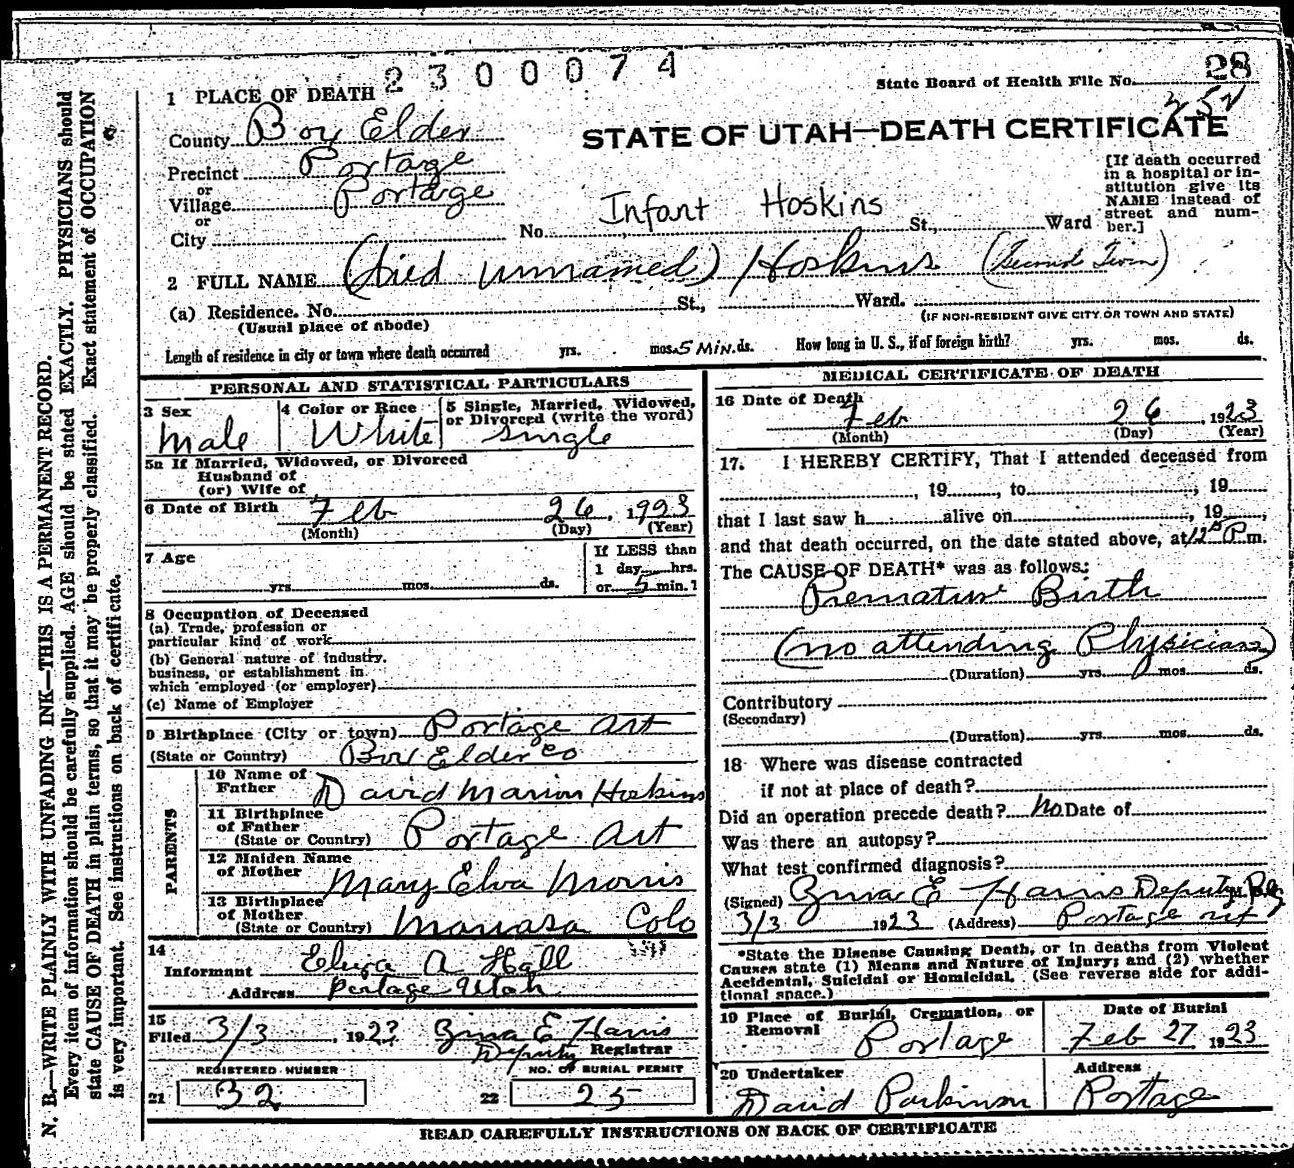 2300074
State Board of Health File No. 28
252
1 PLACE OF DEATH
County Box Elder
STATE OF UTAH—DEATH CERTIFICATE
Precinct Portage
or
Village Portage
or
City
No. Infant Hoskins St., Ward
[If death occurred
in a hospital or in-
stitution give its
NAME instead of
street and num-
ber.]
2 FULL NAME (died unnamed) Hoskins (Second Twin)
(a) Residence. No. St., Ward.
(Usual place of abode)
(IF NON-RESIDENT GIVE CITY OR TOWN AND STATE)
Length of residence in city or town where death occurred yrs. mos. 5 MIN. ds. How long in U. S., if of foreign birth? yrs. mos. ds.
PERSONAL AND STATISTICAL PARTICULARS
3 Sex
male
4 Color or Race
White
5 Single, Married, Widowed,
or Divorced (write the word)
Single
5a If Married, Widowed, or Divorced
Husband of
(or) Wife of
6 Date of Birth Feb 26, 1923
(Month) (Day) (Year)
7 Age
yrs. mos. ds.
If LESS than
1 day hrs.
or 5 min.?
8 Occupation of Deceased
(a) Trade, profession or
particular kind of work
(b) General nature of industry,
business, or establishment in
which employed (or employer)
(c) Name of Employer
9 Birthplace (City or town) Portage
(State or Country) Box Elder Co
PARENTS
10 Name of
Father David Marion Hoskins
11 Birthplace
of Father
(State or Country) Portage
12 Maiden Name
of Mother Mary Elva Morris
13 Birthplace
of Mother
(State or Country) Manassa Colo
14
Informant Eliza A Hall
Address Portage Utah
15
Filed 3/3, 1923 Zina E Harris
Deputy Registrar
REGISTERED NUMBER
21 32
NO. OF BURIAL PERMIT
22 25
MEDICAL CERTIFICATE OF DEATH
16 Date of Death
Feb 26, 1923
(Month) (Day) (Year)
17. I HEREBY CERTIFY, That I attended deceased from
, 19 , to , 19
that I last saw h alive on , 19 ,
and that death occurred, on the date stated above, at 12 P m.
The CAUSE OF DEATH* was as follows:
Premature Birth
(no attending Physician)
(Duration) yrs. mos. ds.
Contributory
(Secondary)
(Duration) yrs. mos. ds.
18 Where was disease contracted
if not at place of death?
Did an operation precede death? No Date of
Was there an autopsy?
What test confirmed diagnosis?
(Signed) Zina E Harris Deputy Reg
3/3 1923 (Address) Portage
*State the Disease Causing Death, or in deaths from Violent
Causes state (1) Means and Nature of Injury; and (2) whether
Accidental, Suicidal or Homicidal. (See reverse side for addi-
tional space.)
19 Place of Burial, Cremation, or
Removal
Portage
Date of Burial
Feb 27 1923
20 Undertaker
David Parkinson
Address
Portage
READ CAREFULLY INSTRUCTIONS ON BACK OF CERTIFICATE
N. B.—WRITE PLAINLY WITH UNFADING INK—THIS IS A PERMANENT RECORD.
Every item of information should be carefully supplied. AGE should be stated EXACTLY. PHYSICIANS should
state CAUSE OF DEATH in plain terms, so that it may be properly classified. Exact statement of OCCUPATION
is very important. See instructions on back of certificate.